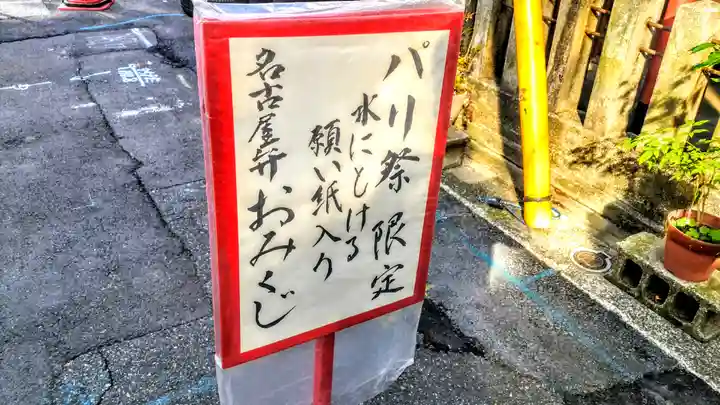 パリ祭限定
水にとける
願い紙入り
名古屋弁おみくじ